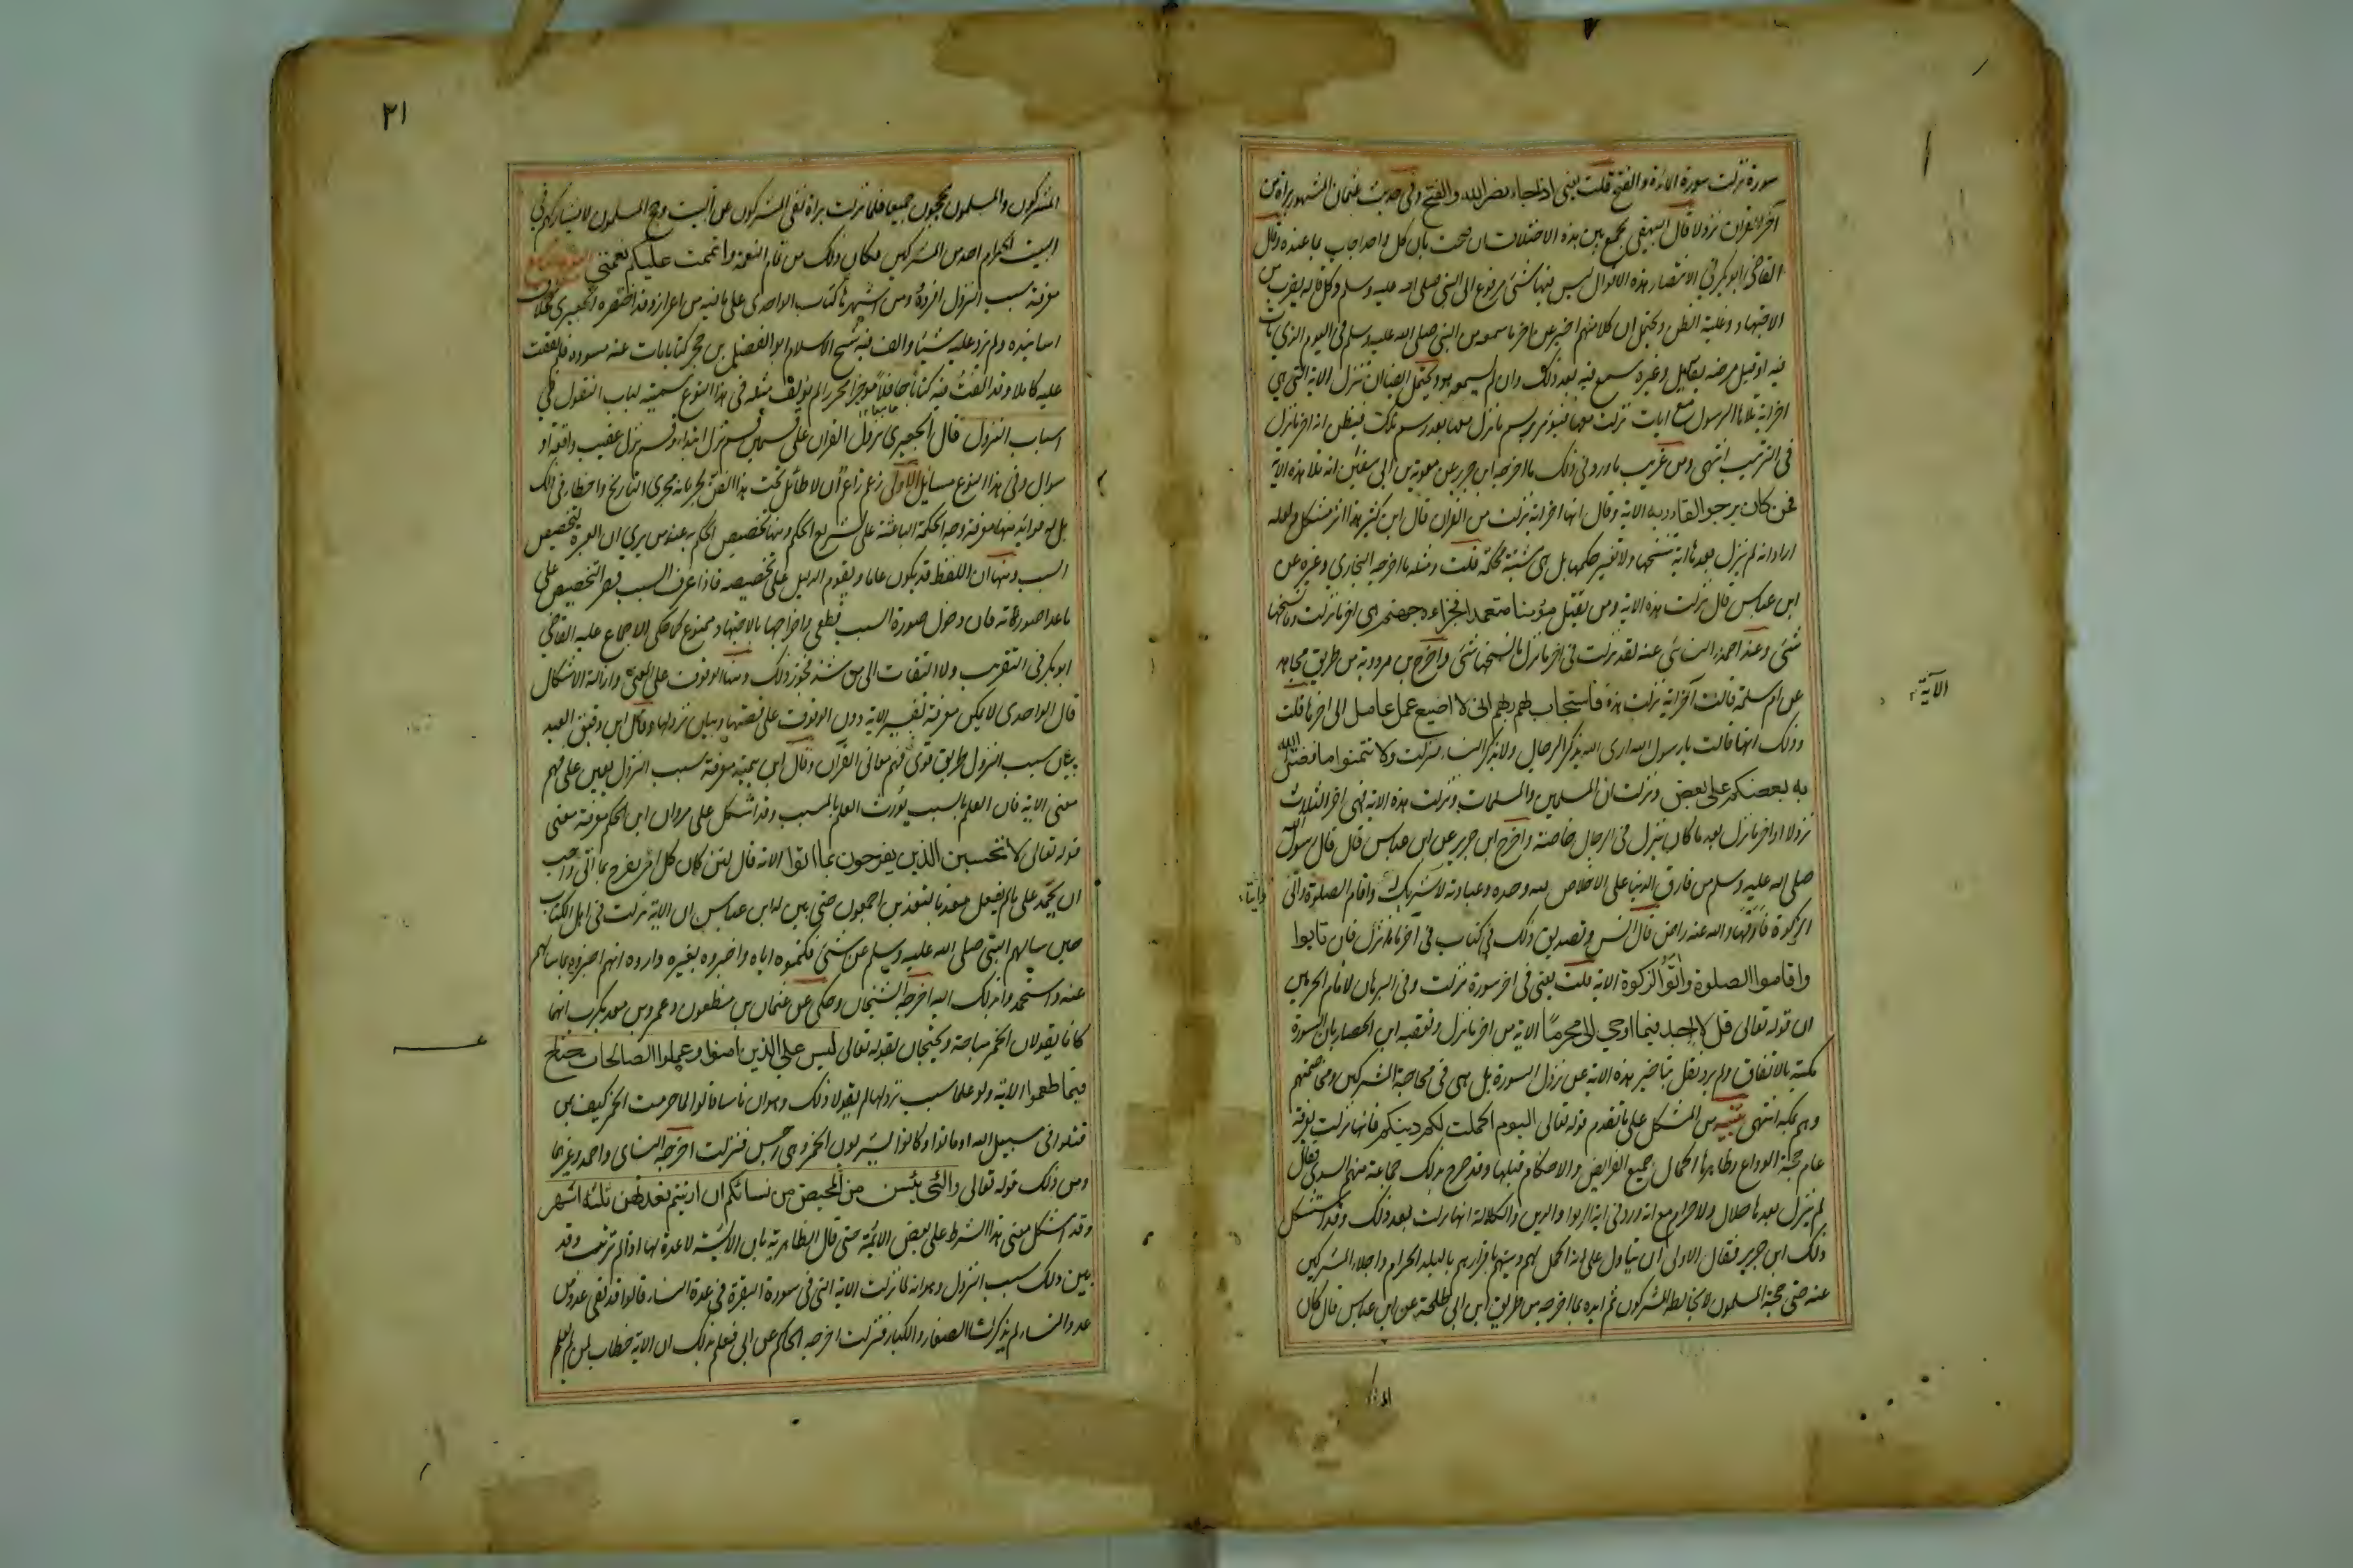 سورة نزلت سورة المائدة والفتح قلت يعنى اذا جاء نصر الله والفتح وفى حديث عثمان المشهور براة من
آخر القران نزولا قال البيهقى يجمع بين هذه الاختلافات ان صحت بان كل واحد اجاب بما عنده وقال
القاضى ابو بكر فى الانتصار هذه الاقوال ليس فيها شئ مرفوع الى النبى صلى الله عليه وسلم وكل قاله بضرب من
الاجتهاد وغلبة الظن ويحتمل ان كلا منهم اخبر عن اخر ما سمعه من النبى صلى الله عليه وسلم فى اليوم الذى مات
فيه او قبل مرضه بقليل وغيره سمع منه بعد ذلك وان لم يسمعه هو ويحتمل ايضا ان تنزل الاية التى هى
اخر اية تلاها الرسول مع ايات نزلت معها فيؤمر برسم ما نزل معها بعد رسم تلك فيظن انه اخر ما نزل
فى الترتيب انتهى ومن غريب ما ورد فى ذلك ما اخرجه ابن جرير عن معوية بن ابى سفين انه تلا هذه الاية
فمن كان يرجو القاء ربه الاية وقال انها اخر اية نزلت من القران قال ابن كثير هذا اثر مشكل ولعله
اراد انه لم ينزل بعدها اية تنسخها ولا تغير حكمها بل هى مثبتة محكمة قلت ومثله ما اخرجه البخارى وغيره عن
ابن عباس قال نزلت هذه الاية ومن يقتل مؤمنا متعمدا فجزاءه جهنم هى اخر ما نزلت وما نسخها
شئ وعند احمد والنسائى عنه لقد نزلت فى اخر ما نزل ما نسخها شئ واخرج بن مردوية من طريق مجاهد
عن ام سلمة قالت آخر اية نزلت هذه فاستجاب لهم ربهم انى لا اضيع عمل عامل الى اخرها قلت
الآية
وذلك انها قالت يا رسول الله ارى الله يذكر الرجال ولا يذكر النساء فنزلت ولا تتمنوا ما فضل الله
به بعضكم على بعض ونزلت ان المسلمين والمسلمات ونزلت هذه الاية فهى اخر الثلاث
نزولا او اخر ما نزل بعد ما كان ينزل فى الرجال خاصة واخرج ابن جرير عن ابن عباس قال قال رسول الله
صلى الله عليه وسلم من فارق الدنيا على الاخلاص لله وحده وعبادته لا شريك له واقام الصلوة واتى
الزكوة فارقها والله عنه راض قال انس وتصديق ذلك فى كتاب فى آخر ما نزل فان تابوا
واقاموا الصلوة واتوا الزكوة الاية قلت يعنى فى اخر سورة نزلت وفى البرهان لامام الحرمين
ان قوله تعالى قل لا اجد فيما اوحى الى محرما الاية من اخر ما نزل وتعقبه ابن الحصار بان السورة
مكية بالاتفاق ولم يرد نقل بتاخير هذه الاية عن نزول السورة بل هى فى محاجة المشركين ومخاصمتهم
وهم بمكة انتهى تنبيه من المشكل على ما تقدم قوله تعالى اليوم اكملت لكم دينكم فانها نزلت بعرفة
عام حجة الوداع وظاهرها اكمال جميع الفرايض والاحكام قبلها وقد صرح بذلك جماعة منهم السدى فقال
لم ينزل بعدها حلال ولا حرام مع انه ورد فى اية الربوا والدين والكلالة انها نزلت بعد ذلك وقد استشكل
ذلك ابن جرير فقال الاولى ان يتاول على انه اكمل لهم دينهم باقرارهم بالبلد الحرام واجلاء المشركين
عنه حتى حجه المسلمون لا يخالطه المشركون ثم ايده بما اخرجه من طريق ابن ابى طلحة عن ابن عباس قال كان
٢١
المشركون والمسلمون يحجون جميعا فلما نزلت براة نفى المشركون عن البيت وحج المسلمون لا يشاركهم فى
البيت الحرام احد من المشركين فكان ذلك من تمام النعمة واتممت عليكم نعمتى
معرفة سبب النزول افرده ومن اشهرها كتاب الواحدى على ما فيه من اعواز وقد اختصره الجعبرى
اسانيده ولم يزد عليه شيئا والف فيه شيخ الاسلام ابو الفضل بن حجر كتابا مات عنه مسودة فلم نقف
عليه كاملا وقد الفت فيه كتابا حافلا موجزا محررا لم يؤلف مثله فى هذا النوع سميته لباب النقول فى
اسباب النزول قال الجعبرى نزول القران على قسمين قسم نزل ابتداء وقسم نزل عقيب واقعة او
سوال وفى هذا النوع مسايل الاولى زعم زاعم ان لا طائل تحت هذا الفن لجريانه مجرى التاريخ واخطا فى ذلك
بل له فوائد منها معرفة وجه الحكمة الباعثة على تشريع الحكم ومنها تخصيص الحكم به عند من يرى ان العبرة بخصوص
السبب ومنها ان اللفظ قد يكون عاما ويقوم الدليل على تخصيصه فاذا عرف السبب قصر التخصيص على
ما عدا صورته فان دخول صورة السبب قطعى واخراجها بالاجتهاد ممنوع كما حكى الاجماع عليه القاضى
ابو بكر فى التقريب ولا التفات الى من شذ فجوز ذلك ومنها الوقوف على المعنى وازالة الاشكال
قال الواحدى لا يمكن معرفة تفسير الاية دون الوقوف على قصتها وبيان نزولها وقال ابن دقيق العيد
بيان سبب النزول طريق قوى فى فهم معانى القران وقال ابن تيمية معرفة سبب النزول يعين على فهم
معنى الاية فان العلم بالسبب يورث العلم بالمسبب وقد اشكل على مروان ابن الحكم معرفة معنى
قوله تعالى لا تحسبن الذين يفرحون بما اتوا الاية قال لئن كان كل امرئ يفرح بما اتى واحب
ان يحمد على ما لم يفعل معذبا لنعذبن اجمعون حتى بين له ابن عباس ان الاية نزلت فى اهل الكتاب
حين سالهم النبى صلى الله عليه وسلم عن شئ فكتموه اياه واخبروه بغيره واروه انهم اخبروه بما سالهم
عنه واستحمدوا بذلك اليه اخرجه الشيخان وحكى عن عثمان بن مظعون وعمرو بن معديكرب انهما
كانا يقولان الخمر مباحة ويحتجان بقوله تعالى ليس على الذين امنوا وعملوا الصالحات جناح
فيما طعموا الاية ولو علما سبب نزولها لم يقولا ذلك وهو ان ناسا قالوا لما حرمت الخمر كيف بمن
قتلوا فى سبيل الله او ماتوا وكانوا يشربون الخمر وهى رجس فنزلت اخرجه النساى واحمد وغيرهما
ومن ذلك قوله تعالى والئى يئسن من المحيض من نسائكم ان ارتبتم فعدتهن ثلثة اشهر
وقد اشكل معنى هذا الشرط على بعض الائمة حتى قال الظاهرية بان الايسة لا عدة لها اذا لم ترتب وقد
بين ذلك سبب النزول وهو انه لما نزلت الاية التى فى سورة البقرة فى عدة النساء قالوا قد بقى عدد من
عدد النساء لم يذكرن الصغار والكبار فنزلت اخرجه الحاكم عن ابى فعلم بذلك ان الاية خطاب لمن لم يعلم